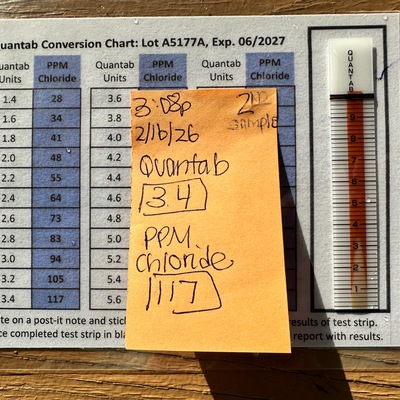 Quantab Conversion Chart: Lot A5177A, Exp. 06/2027
Quantab Units PPM Chloride Quantab Units PPM Chloride
1.4 28 3.6
1.6 34 3.8
1.8 41 4.0
2.0 48 4.2
2.2 55 4.4
2.4 64 4.6
2.6 73 4.8
2.8 83 5.0
3.0 94 5.2
3.2 105 5.4
3.4 117 5.6
3:08p
2/16/26
2ND
sample
Quantab
3.4
PPM
chloride
117
QUANTAB
9
8
7
6
5
4
3
2
1
on a post-it note and
results of test strip.
completed test strip in
report with results.